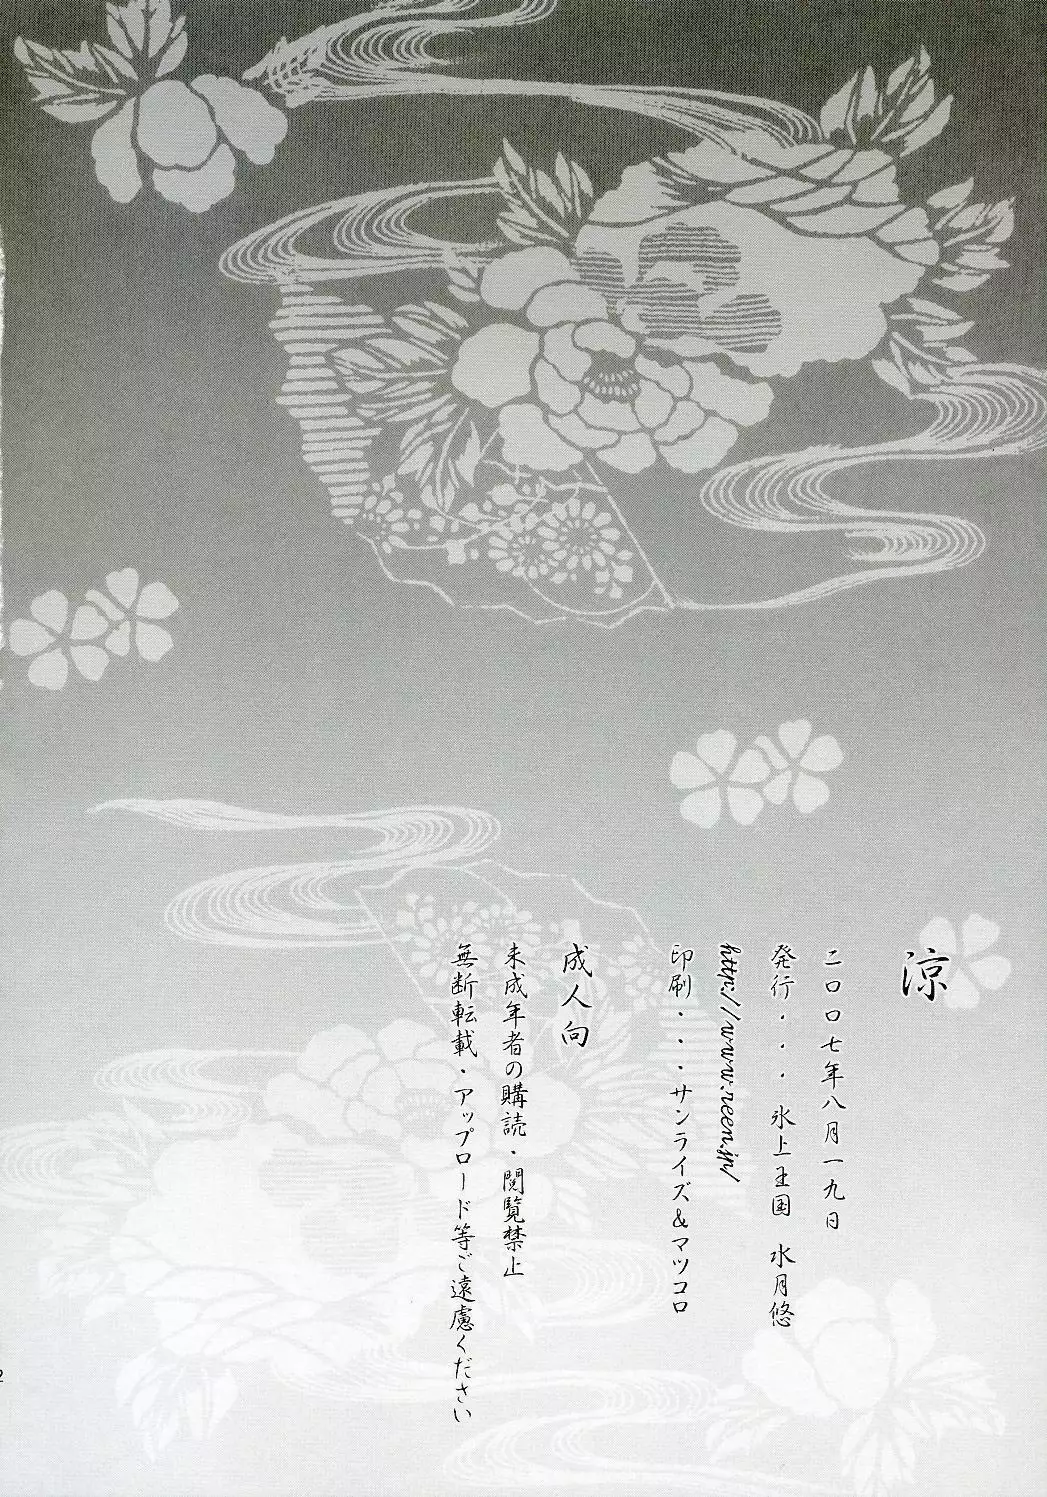 涼
二〇〇七年八月一九日
発行・・・氷上王国　水月悠
http://www.reen.jp/
印刷・・・サンライズ&マツコロ
成人向
未成年者の購読・閲覧禁止
無断転載・アップロード等ご遠慮ください
2